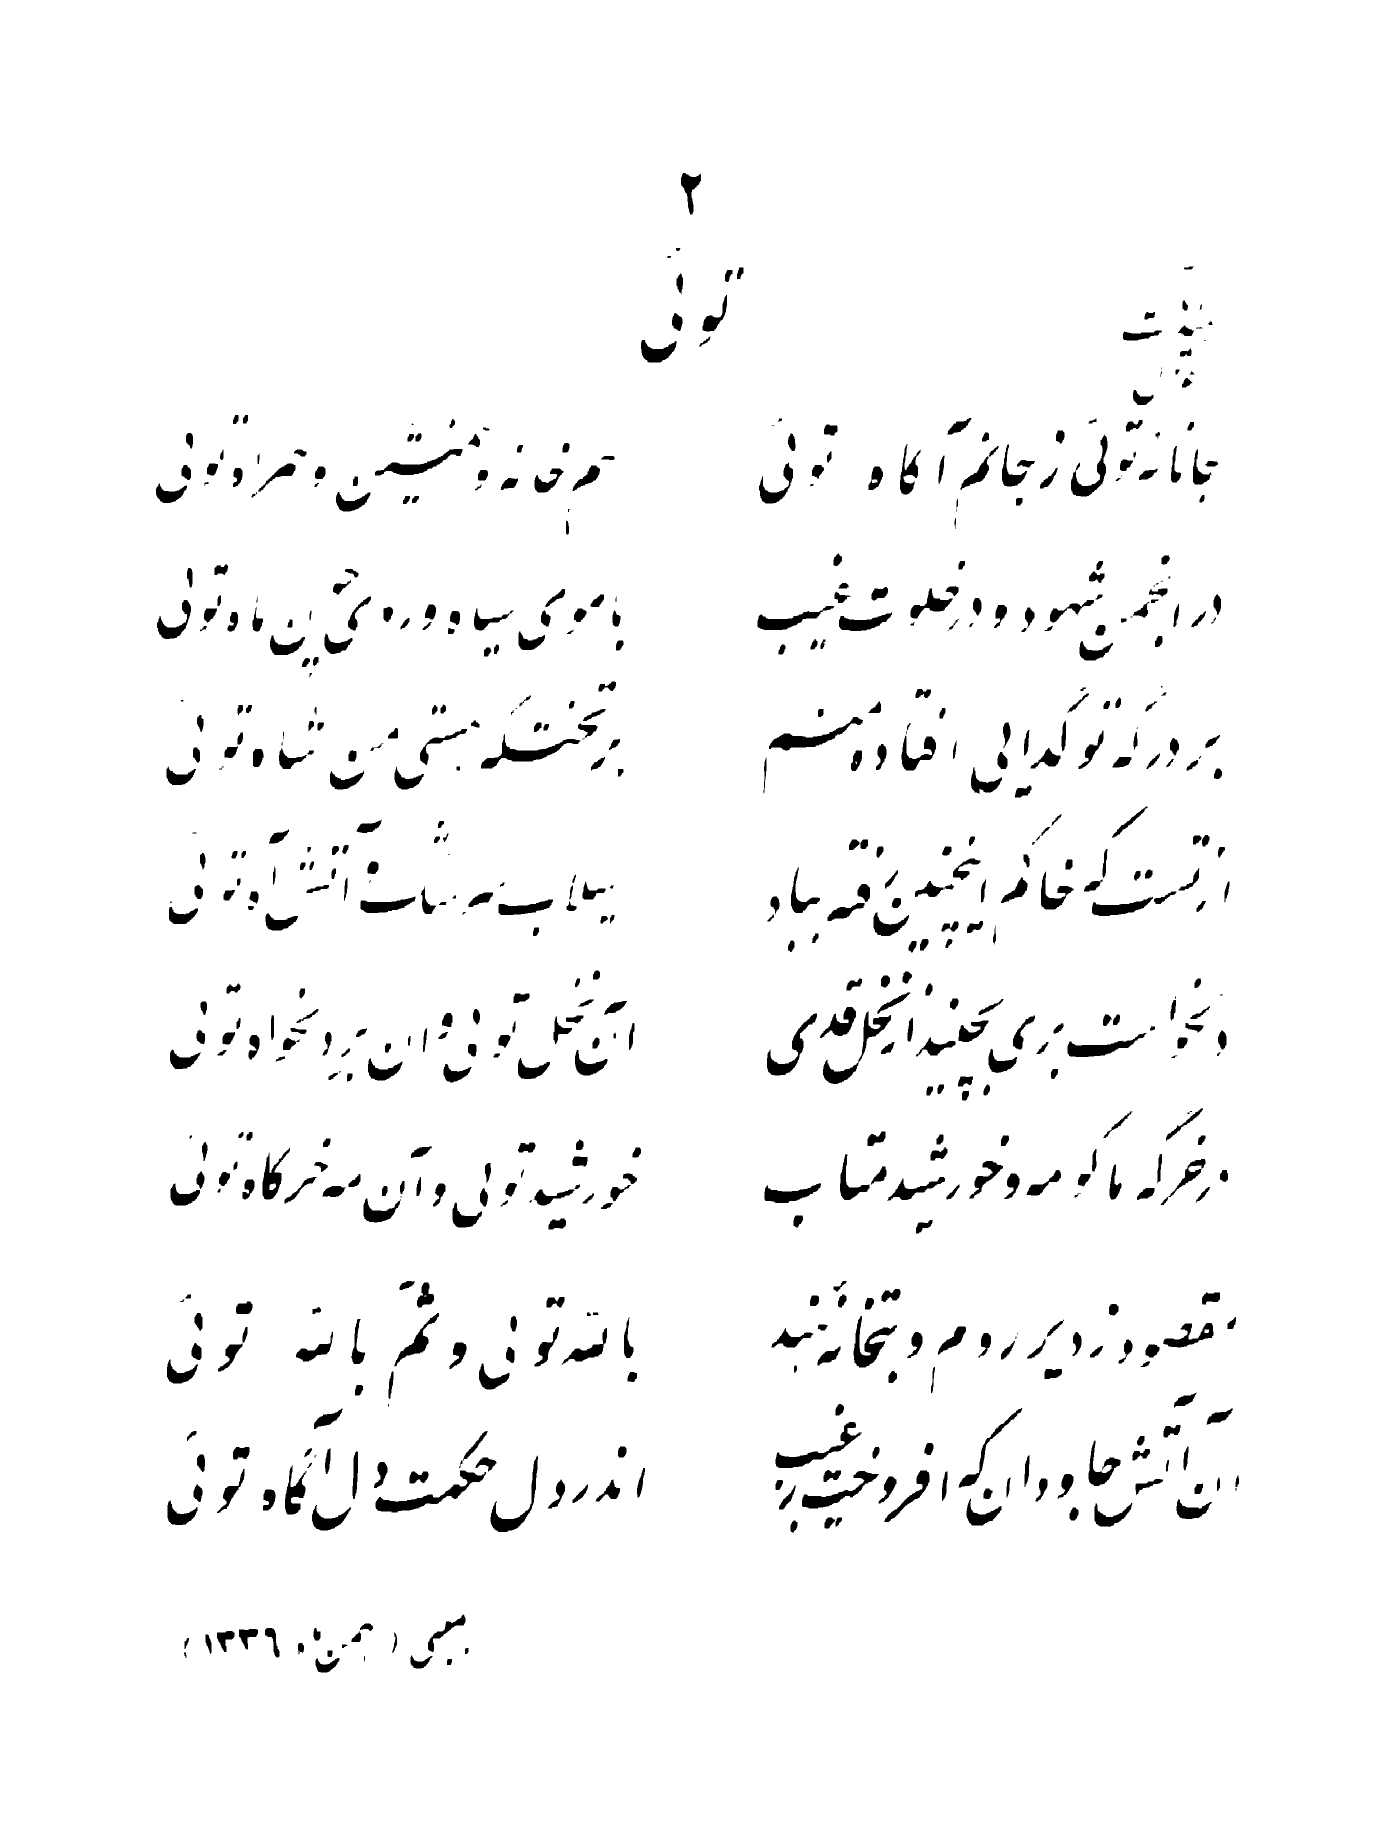 ۲
توئی
جانانه توئی ز جانم آگاه توئی هم خانه و همنشین و همراه توئی
در انجمن شهود و در خلوت غیب با موی سیاه و روی چون ماه توئی
بر درگه تو گدایی افتاده منم بر تختگه هستی من شاه توئی
از تست که خاکم اینچنین رفته بباد سیلاب سرشک و آتش آه توئی
دلخواست بری بچیند از نخل قدی آن نخل توئی و آن بر دلخواه توئی
در خرگه ما گو مه و خورشید متاب خورشید توئی و آن مه خرگاه توئی
مقصود ز دیر روم و بتخانهٔ هند بالله توئی و ثم بالله توئی
آن آتش جاودان که افروخت ز غیب اندر دل حکمت دل آگاه توئی
بمبئی (بهمن ماه ۱۳۳۶)